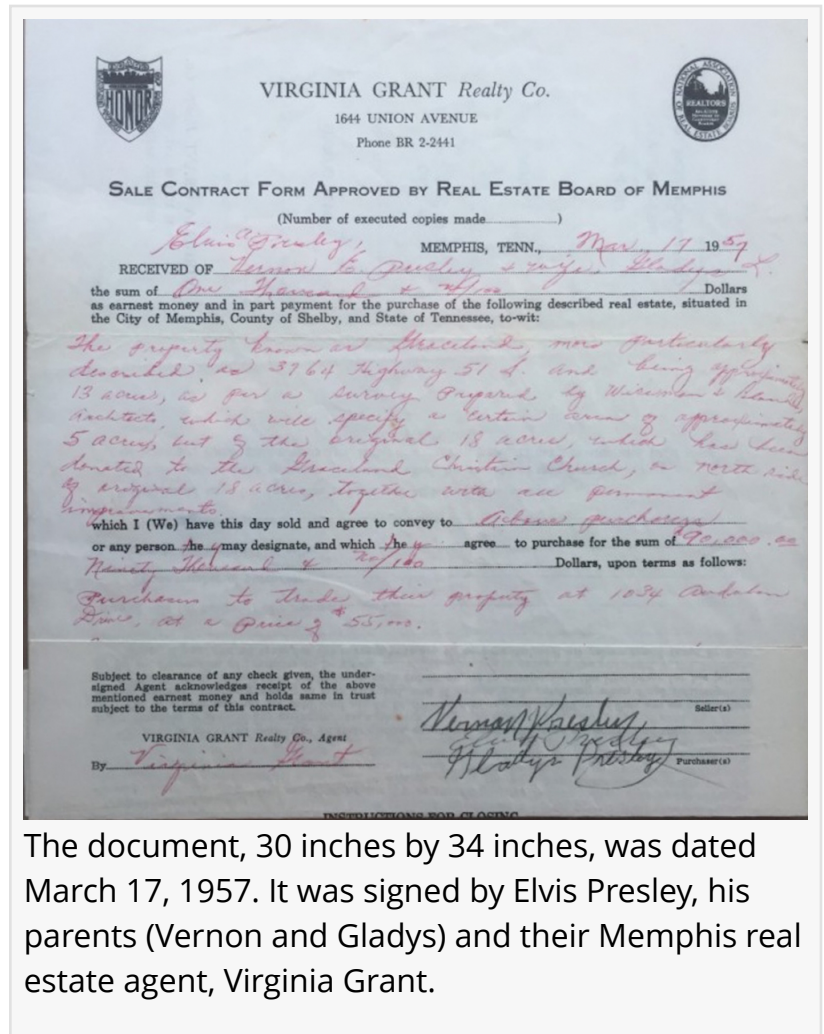 HONOR
NATIONAL ASSOCIATION OF REAL ESTATE BOARDS
REALTORS
VIRGINIA GRANT Realty Co.
1644 UNION AVENUE
Phone BR 2-2441
SALE CONTRACT FORM APPROVED BY REAL ESTATE BOARD OF MEMPHIS
(Number of executed copies made )
Elvis A Presley,
MEMPHIS, TENN., Mar. 17 1957
RECEIVED OF Vernon E. Presley + wife, Gladys L.
the sum of One Thousand + no/100 Dollars
as earnest money and in part payment for the purchase of the following described real estate, situated in
the City of Memphis, County of Shelby, and State of Tennessee, to-wit:
The property known as Graceland, more particularly
described as 3764 Highway 51 S. and being approximately
13 acres, as per a survey prepared by Wiseman &
Architects, which will specify a certain area of approximately
5 acres, out of the original 18 acres, which has been
donated to the Graceland Christian Church, on north side
of original 18 acres, together with all permanent
improvements.
which I (We) have this day sold and agree to convey to above purchasers
or any person they may designate, and which they agree to purchase for the sum of $90,000.00
Ninety Thousand + no/100 Dollars, upon terms as follows:
Purchasers to trade their property at 1034 Audubon
Drive, at a price of $55,000.
Subject to clearance of any check given, the under-
signed Agent acknowledges receipt of the above
mentioned earnest money and holds same in trust
subject to the terms of this contract.
Seller(s)
VIRGINIA GRANT Realty Co., Agent
By Virginia Grant
Vernon Presley
Elvis Presley
Gladys Presley
Purchaser(s)
INSTRUCTIONS FOR CLOSING
The document, 30 inches by 34 inches, was dated
March 17, 1957. It was signed by Elvis Presley, his
parents (Vernon and Gladys) and their Memphis real
estate agent, Virginia Grant.